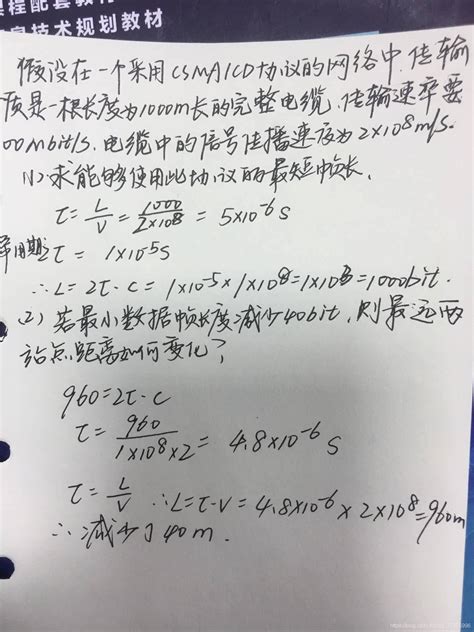 课程配套教材
息技术规划教材
假设在一个采用CSMA/CD协议的网络中,传输
质是一根长度为1000m长的完整电缆,传输速率要
00Mbit/s.电缆中的信号传播速度为2×10⁸m/s.
(1)求能够使用此协议的最短帧长、
τ=L/V=1000/2×10⁸=5×10⁻⁶s
争用期2τ=1×10⁻⁵s
∴L=2τ·c=1×10⁻⁵×1×10⁸=1×10³=1000bit.
(2)若最小数据帧长度减少40bit,则最远两
站点距离如何变化?
960=2τ·c
τ=960/1×10⁸×2=4.8×10⁻⁶s
τ=L/V ∴L=τ·V=4.8×10⁻⁶×2×10⁸=960m
∴减少了40m.